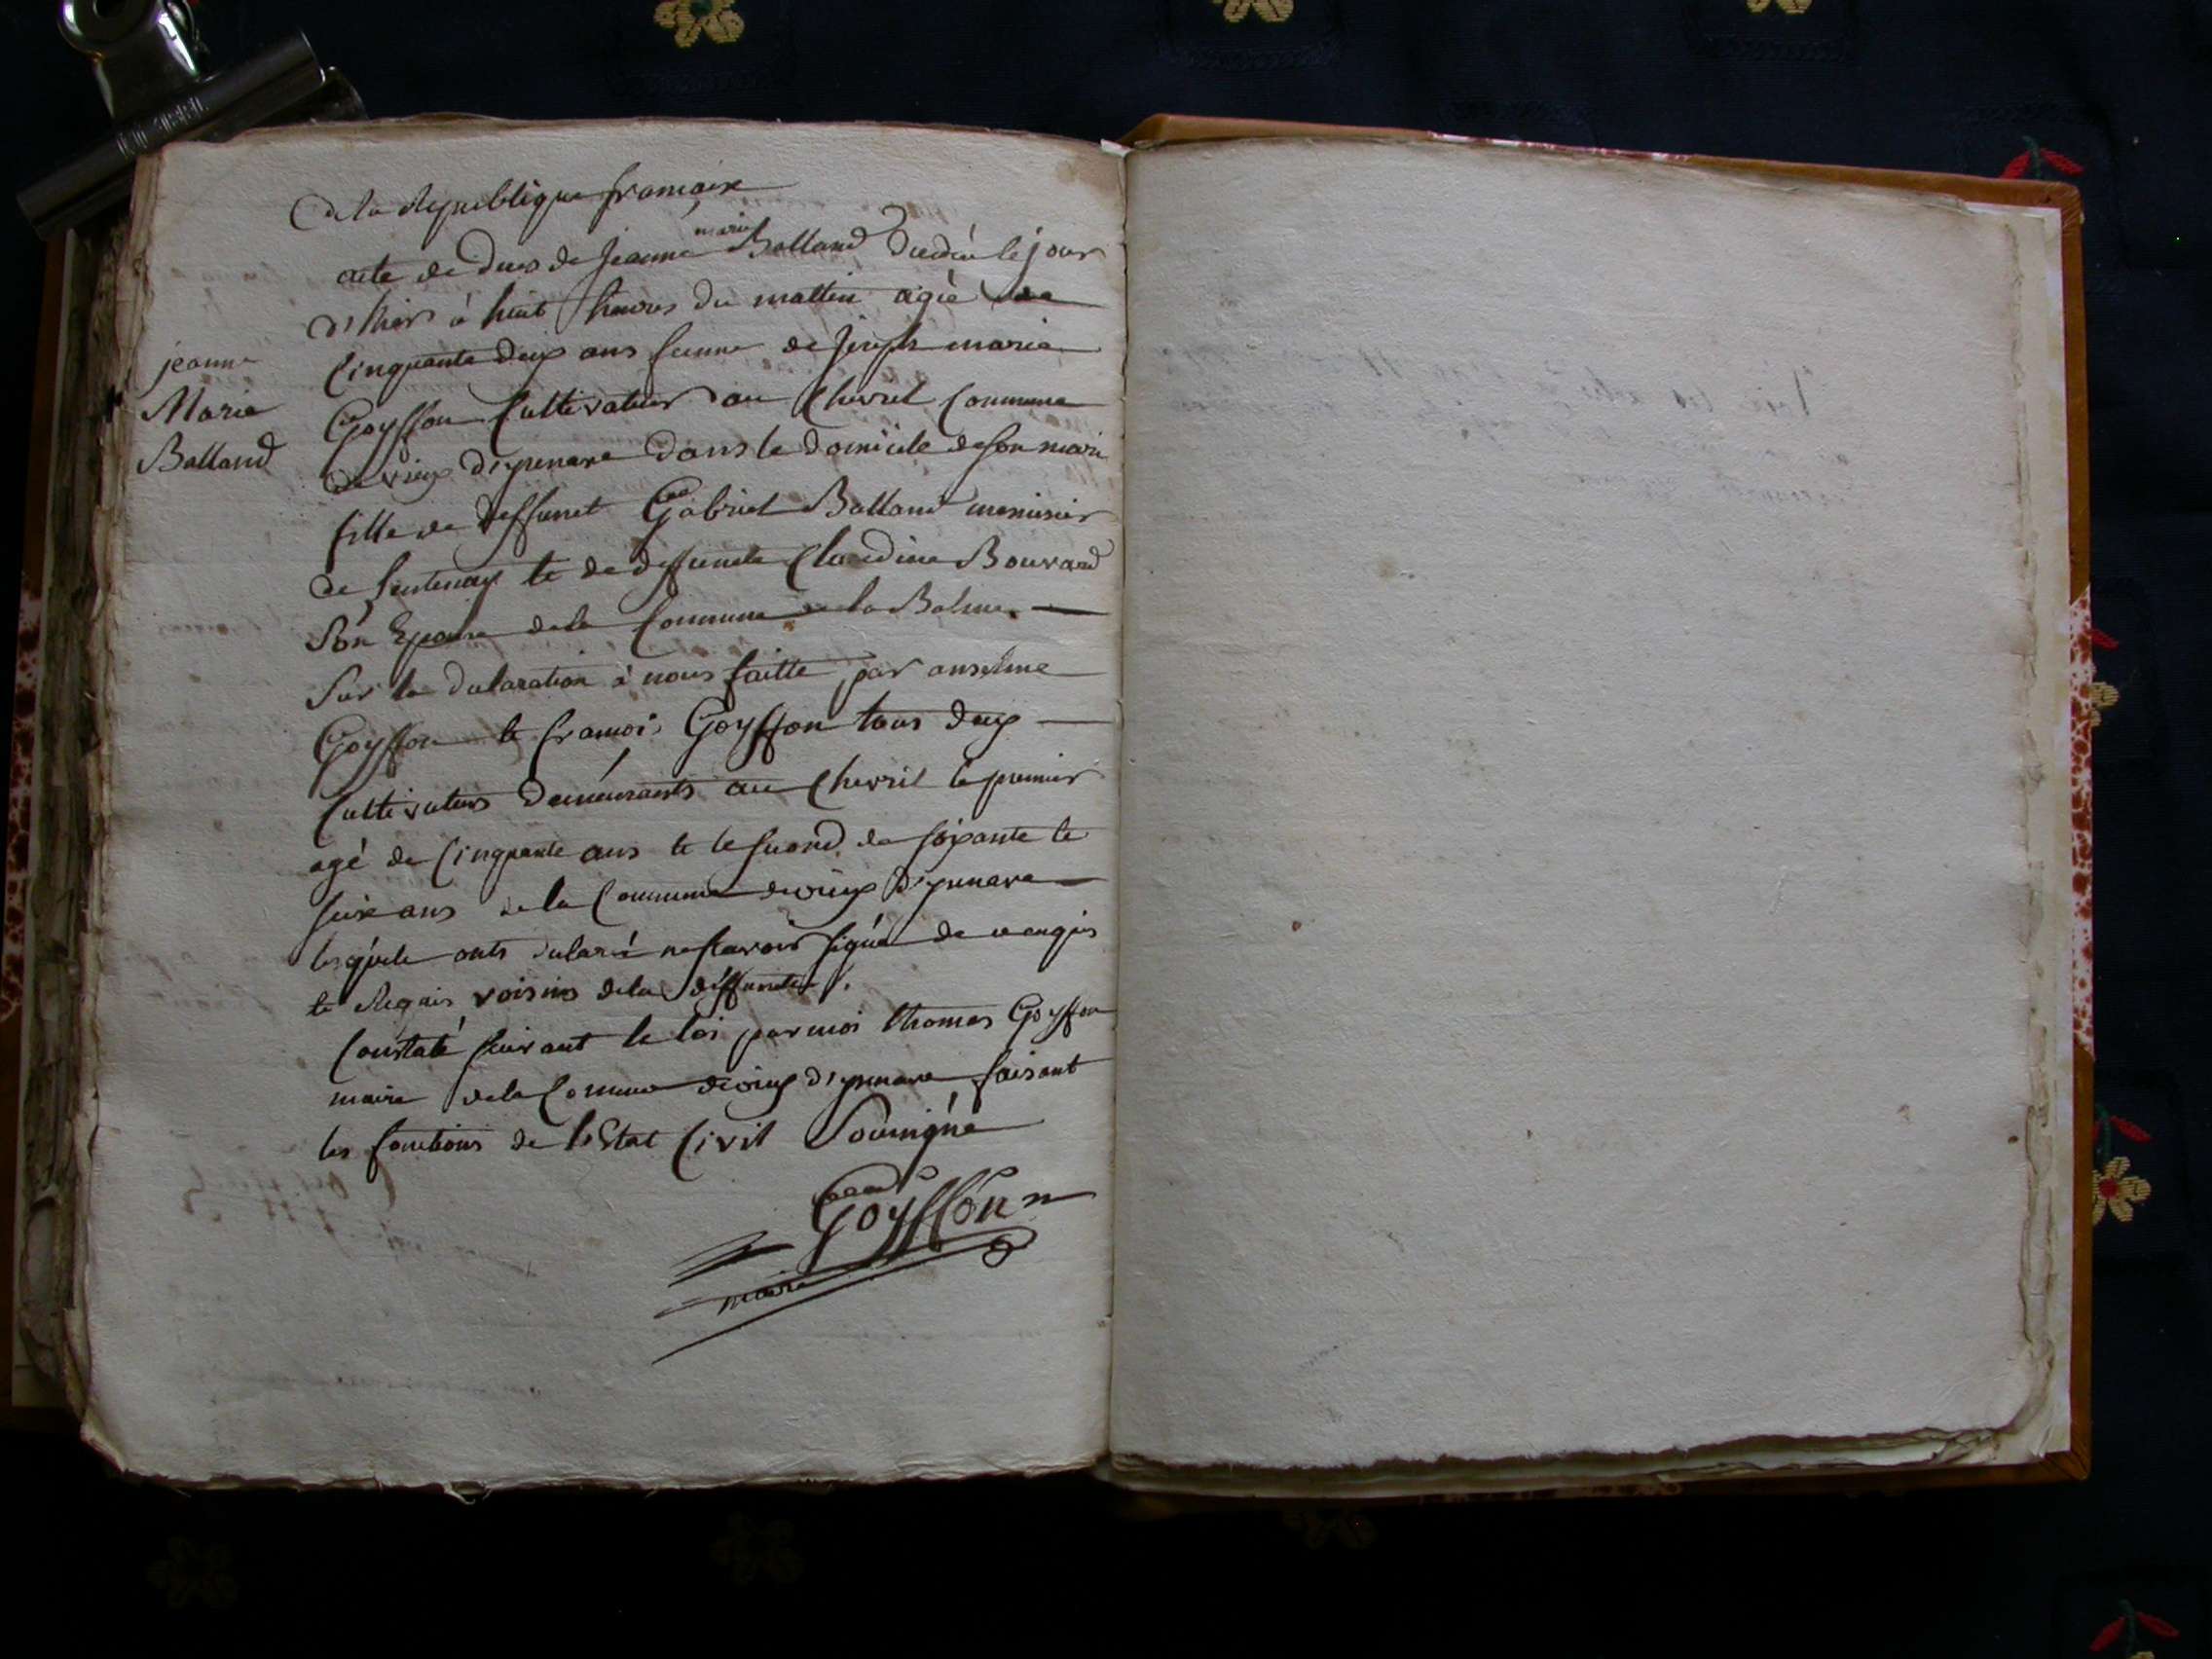 de la Republique francaise
acte de deces de jeanne marie Balland decedée le jour
d'hier à huit heures du mattin agée de
jeanne
Marie
Balland
Cinquante deux ans femme de joseph marie
Goyffon Cultivateur au Chevril Commune
de vieux d'yzenave dans le domicile de son mari
fille de deffunct Gabriel Balland menuisier
de et de deffuncte Claudine Bouvard
son Epouse de la Commune de la Balme.
Sur la declaration à nous faitte par anselme
Goyffon et francois Goyffon tous deux
Cultivateurs demeurants au Chevril le premier
agé de Cinquante ans et le second de soixante et
seize ans de la Commune de vieux d'yzenave
lesquels onts declaré ne scavoir signé de ce enquis
et Requis voisins de la deffuncte.
Constaté suivant la loi par moi thomas Goyffon
maire de la Commune de vieux d'yzenave faisant
les fonctions de l'Etat Civil Soussigné
Goyffon
maire